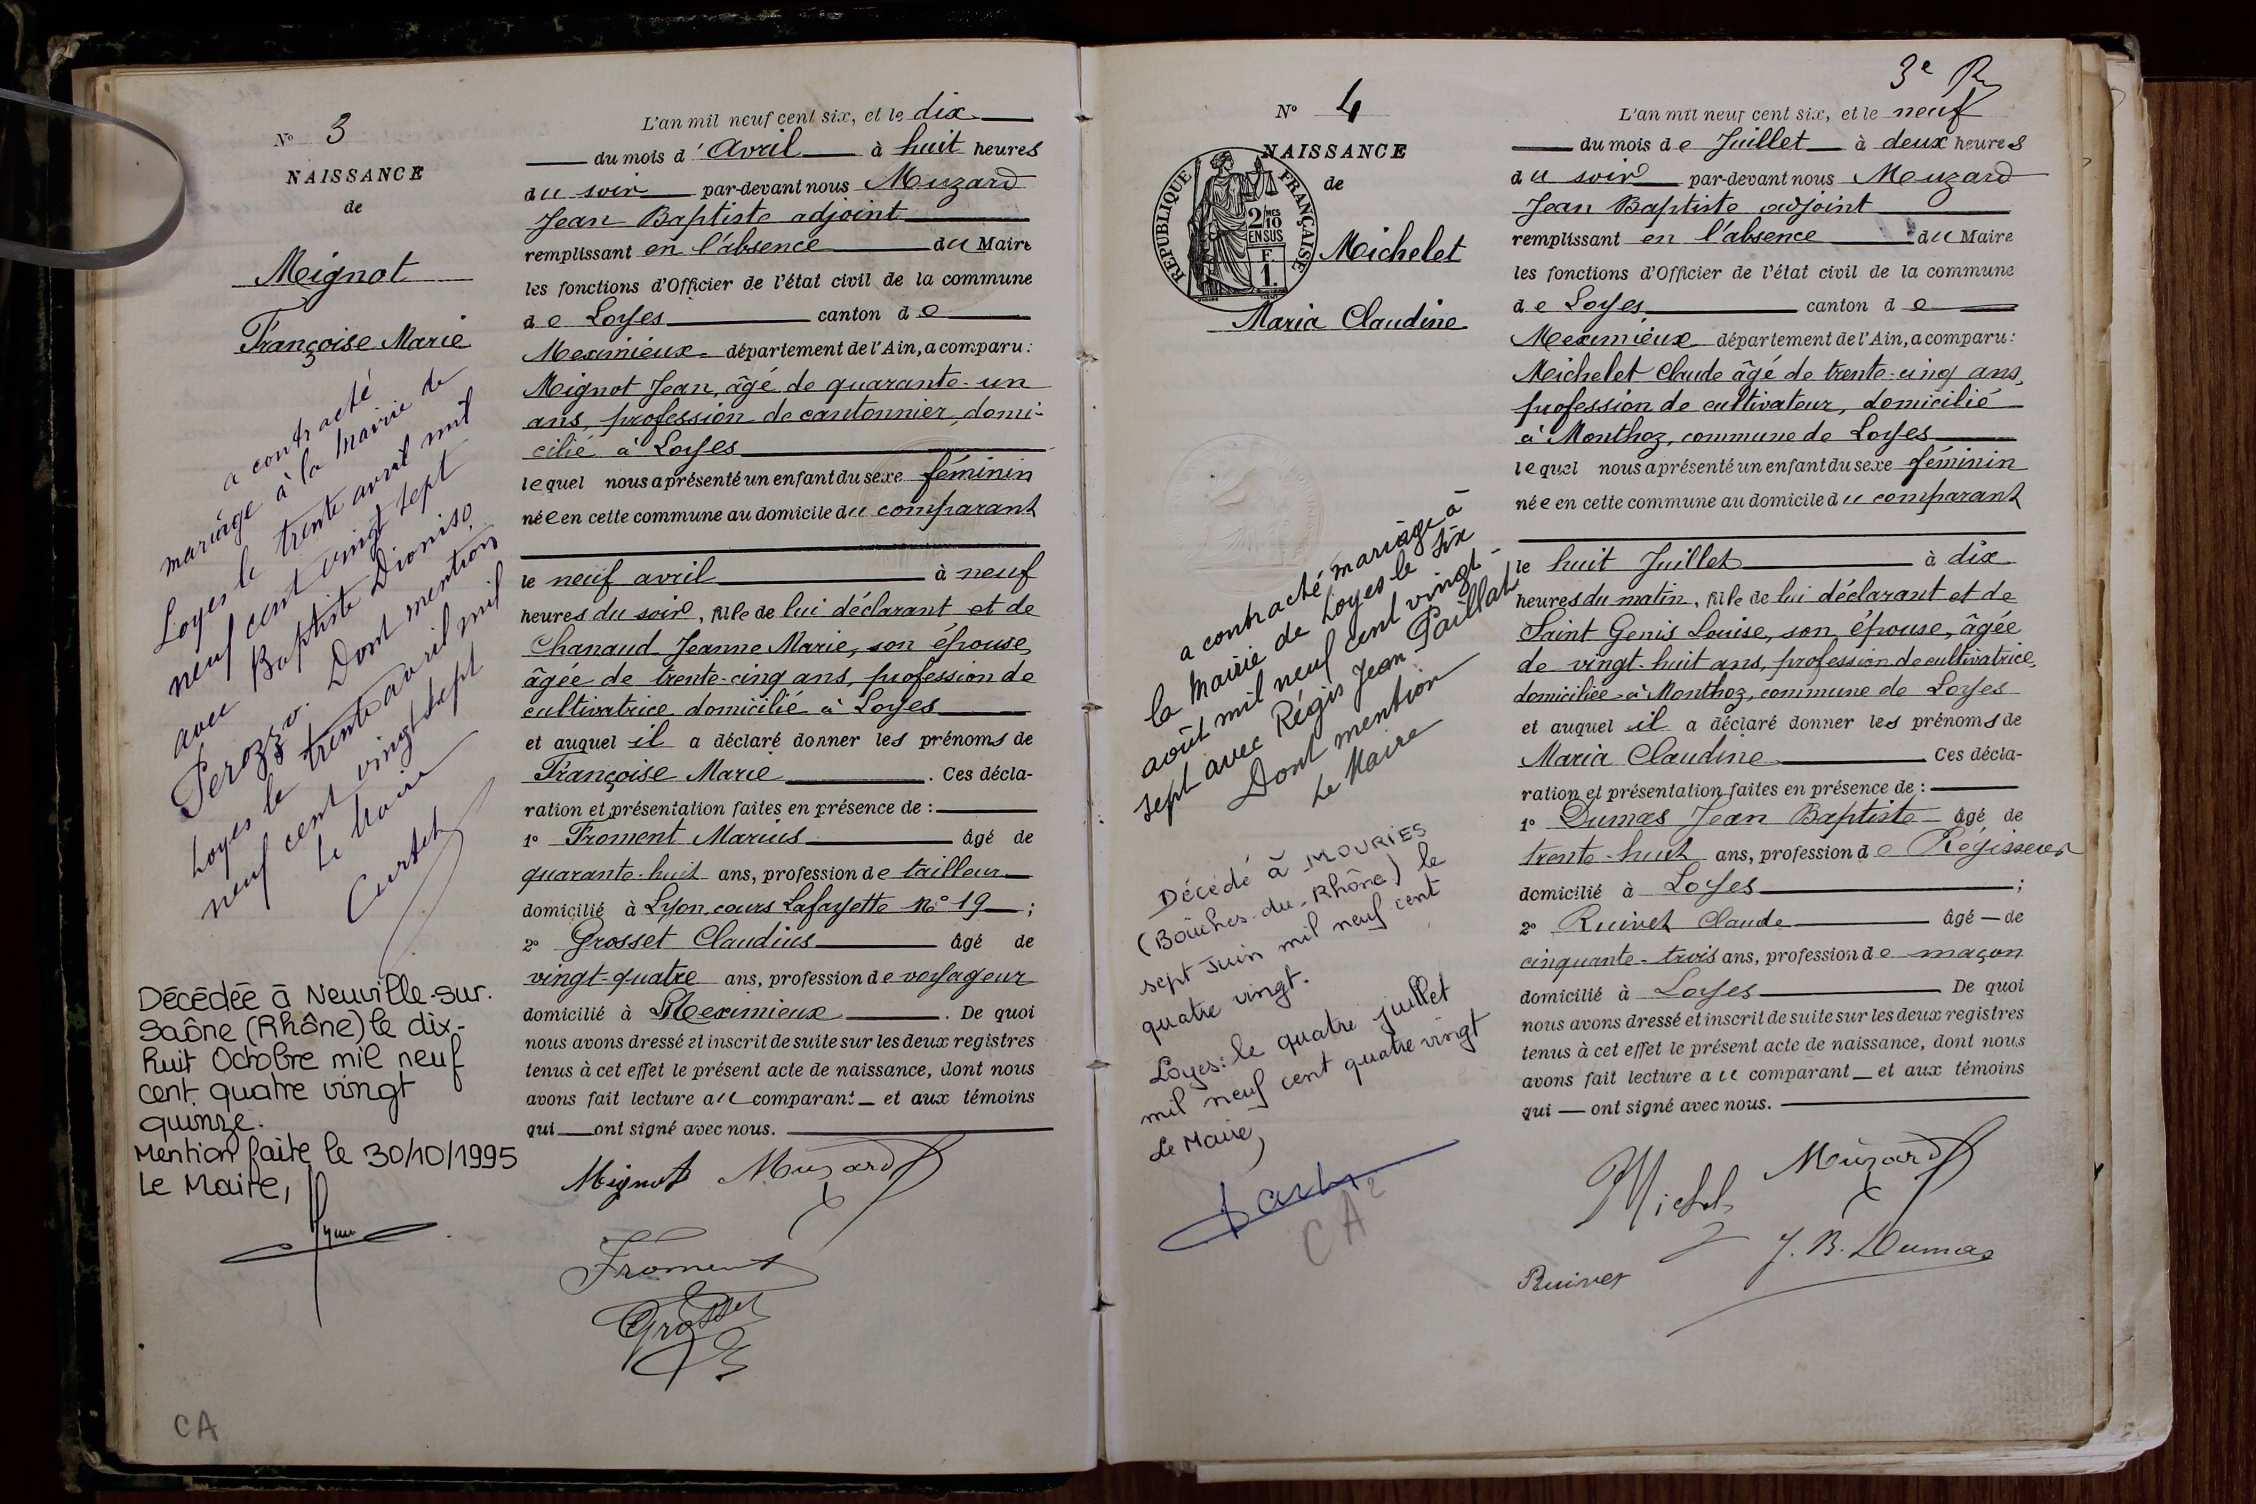 N° 3
NAISSANCE
de
Mignot
Françoise Marie
a contracté
mariage à la Mairie de
Loyes le trente avril mil
neuf cent vingt sept
avec Baptiste Dioniso
Perozzo. Dont mention
Loyes le trente avril mil
neuf cent vingt sept
Le Maire
Curtet
Décédée à Neuville-sur-
Saône (Rhône) le dix-
huit Octobre mil neuf
cent quatre vingt
quinze.
Mention faite le 30/10/1995
Le Maire,
CA
L'an mil neuf cent six, et le dix
du mois d'Avril à huit heures
du soir par-devant nous Muzard
Jean Baptiste adjoint
remplissant en l'absence du Maire
les fonctions d'Officier de l'état civil de la commune
de Loyes canton de
Meximieux département de l'Ain, a comparu:
Mignot Jean, âgé de quarante-un
ans, profession de cantonnier, domi-
cilié à Loyes
lequel nous a présenté un enfant du sexe féminin
née en cette commune au domicile du comparant
le neuf avril à neuf
heures du soir, fille de lui déclarant et de
Chanaud Jeanne Marie, son épouse,
âgée de trente-cinq ans, profession de
cultivatrice domicilié à Loyes
et auquel il a déclaré donner les prénoms de
Françoise Marie. Ces décla-
ration et présentation faites en présence de:
1° Froment Marius âgé de
quarante-huit ans, profession de tailleur
domicilié à Lyon, cours Lafayette N° 19;
2° Grosset Claudius âgé de
vingt-quatre ans, profession de voyageur
domicilié à Meximieux. De quoi
nous avons dressé et inscrit de suite sur les deux registres
tenus à cet effet le présent acte de naissance, dont nous
avons fait lecture au comparant et aux témoins
qui ont signé avec nous.
Mignot Muzard
Froment
Grosset
3e R
N° 4
NAISSANCE
de
RÉPUBLIQUE FRANÇAISE
2/10 MES
EN SUS
F.
1.
Michelet
Maria Claudine
a contracté mariage à
la Mairie de Loyes le six
août mil neuf cent vingt-
sept avec Régis Jean Paillat
Dont mention
Le Maire
Décédé à MOURIÈS
(Bouches-du-Rhône) le
sept Juin mil neuf cent
quatre vingt.
Loyes: le quatre juillet
mil neuf cent quatre vingt
Le Maire,
CA
L'an mil neuf cent six, et le neuf
du mois de Juillet à deux heures
du soir par-devant nous Muzard
Jean Baptiste adjoint
remplissant en l'absence du Maire
les fonctions d'Officier de l'état civil de la commune
de Loyes canton de
Meximieux département de l'Ain, a comparu:
Michelet Claude âgé de trente-cinq ans,
profession de cultivateur, domicilié
à Monthoz, commune de Loyes
lequel nous a présenté un enfant du sexe féminin
née en cette commune au domicile du comparant
le huit Juillet à dix
heures du matin, fille de lui déclarant et de
Saint Genis Louise, son épouse, âgée
de vingt-huit ans, profession de cultivatrice,
domiciliée à Monthoz, commune de Loyes
et auquel il a déclaré donner les prénoms de
Maria Claudine Ces décla-
ration et présentation faites en présence de:
1° Dumas Jean Baptiste âgé de
trente-huit ans, profession de Régisseur
domicilié à Loyes;
2° Ruivet Claude âgé de
cinquante-trois ans, profession de maçon
domicilié à Loyes De quoi
nous avons dressé et inscrit de suite sur les deux registres
tenus à cet effet le présent acte de naissance, dont nous
avons fait lecture au comparant et aux témoins
qui ont signé avec nous.
Michel Muzard
J. B. Dumas
Ruivet